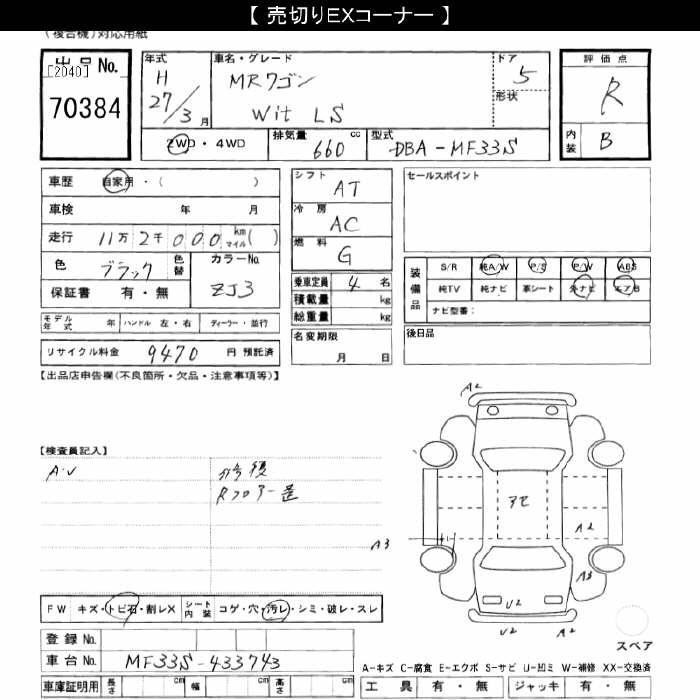 【 売切りEXコーナー 】
(複合機)対応用紙
出品 No.
[2040]
70384
年式
H
27/3 月
車名・グレード
MRワゴン
Wit LS
ドア
5
形状
評価点
R
内装
B
2WD・4WD
排気量
660 cc
型式
DBA-MF33S
車歴 自家用・( )
車検 年 月
走行 11万 2千 000 km マイル ( )
色 ブラック 色替
カラーNo.
ZJ3
保証書 有・無
モデル年式 年 ハンドル 左・右 ディーラー・並行
リサイクル料金 9470 円 預託済
シフト
AT
冷房
AC
燃料
G
乗車定員 4 名
積載量 kg
総重量 kg
名変期限
月 日
セールスポイント
装備品
S/R 純A/W P/S P/W ABS
純TV 純ナビ 革シート 外ナビ エアB
ナビ型番:
後日品
【出品店申告欄(不良箇所・欠品・注意事項等)】
【検査員記入】
A・U
Rフロアー
A2
A2
A3
A3
U2
U2
A2
FW キズ・トビ石・割レX シート内装 コゲ・穴・汚レ・シミ・破レ・スレ
登録 No.
車台 No. MF33S-433743
車庫証明用 長さ cm 幅 cm 高さ cm
スペア
A-キズ C-腐食 E-エクボ S-サビ U-凹ミ W-補修 XX-交換済
工具 有・無 ジャッキ 有・無